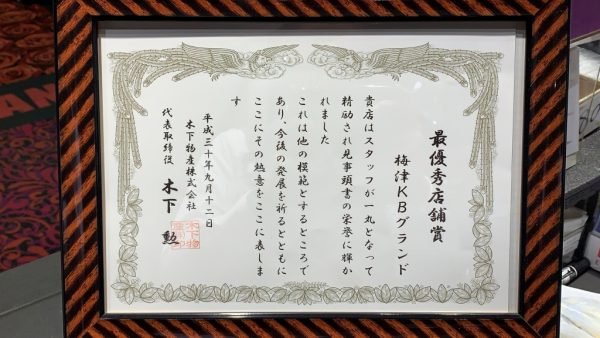 最優秀店舗賞
梅津KBグランド
貴店はスタッフが一丸となって
精励され見事頭書の栄誉に輝か
れました
これは他の模範とするところで
あり、今後の発展を祈るとともに
ここにその熱意をここに表しま
す
平成三十年九月十二日
木下物産株式会社
代表取締役 木下 勲